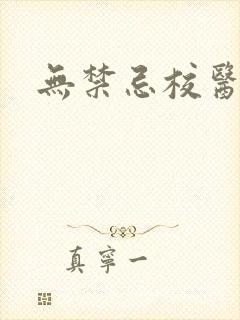 無禁忌校醫
真寧一